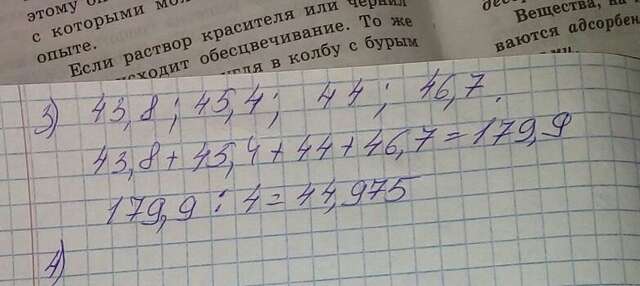 этому
с которыми
опыте.
Если раствор красителя или чернил
исходит обесцвечивание. То же
в колбу с бурым
Вещества, на
ваются адсорбен
3) 43,8; 45,4; 44; 46,7.
43,8 + 45,4 + 44 + 46,7 = 179,9
179,9 : 4 = 44,975
4)